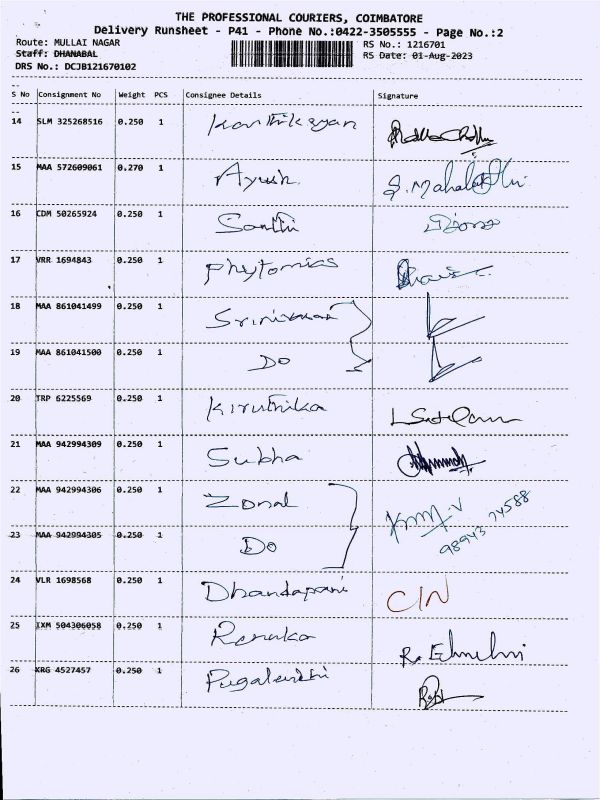 THE PROFESSIONAL COURIERS, COIMBATORE
Delivery Runsheet - P41 - Phone No.:0422-3505555 - Page No.:2
Route: MULLAI NAGAR
RS No.: 1216701
Staff: DHANABAL
RS Date: 01-Aug-2023
DRS No.: DCJB121670102
S No Consignment No Weight PCS Consignee Details Signature
14 SLM 325268516 0.250 1 Karthikeyan
15 MAA 572609061 0.270 1 Ayush. S. Mahalakshmi.
16 CDM 50265924 0.250 1 Santhi
17 VRR 1694843 0.250 1 Phytomias
18 MAA 861041499 0.250 1 Srinivasan
19 MAA 861041500 0.250 1 Do
20 TRP 6225569 0.250 1 Kiruthika
21 MAA 942994309 0.250 1 Subha
22 MAA 942994306 0.250 1 Zonal
98943 74588
23 MAA 942994305 0.250 1 Do
24 VLR 1698568 0.250 1 Dhandapani C/N
25 IXM 504306058 0.250 1 Renuka
26 KRG 4527457 0.250 1 Pugalenthi